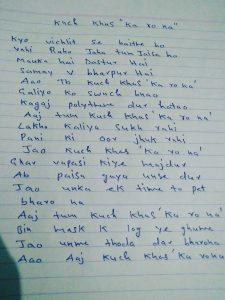 Kuch Khas "Ka ro na"
Kyo vichlit se baithe ho
Vahi Raho Jaha tum Jalsa ho
Mauka hai Dastur Hai
Samay v bharpur Hai
Aao To Kuch Khas "Ka ro ha"
Galiyo Ko Swach bnao
Kagaj polythine dur hatao
Aaj tum Kuch Khas "Ka ro na'
Lakho Kaliya Sukh rahi
Pani ki oor jhuk rahi
Jao Kuch Khas "Ka ro ha'
Ghar vapasi Kiye majdur
Ab paisa gaya unse dur
Jao unka ek time to pet
bharo na
Aaj tum Kuch Khas' Ka ro na'
Bin mask K log ye ghume
Jao unme thoda dar bharoha
Aao Aaj Kuch Khas 'Ka ro na